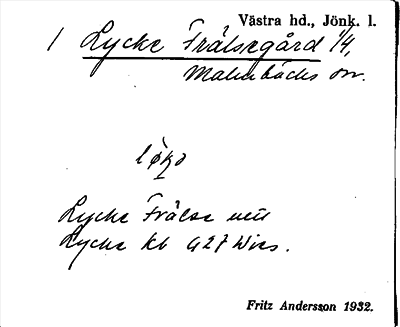 Västra hd., Jönk. l.
1 Lycke Frälsegård 1/4,
Malmbäcks sn.
Lycke Frälse
Lycke kb
Fritz Andersson 1932.